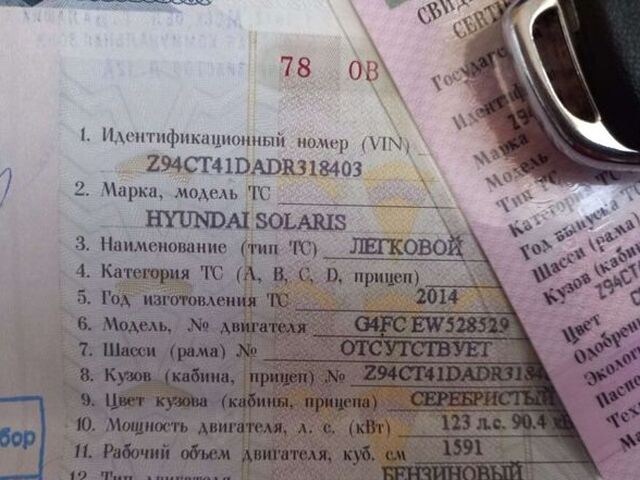 78 ОВ
1. Идентификационный номер (VIN)
Z94CT41DADR318403
2. Марка, модель ТС
HYUNDAI SOLARIS
3. Наименование (тип ТС) ЛЕГКОВОЙ
4. Категория ТС (А, В, С, D, прицеп)
5. Год изготовления ТС 2014
6. Модель, № двигателя G4FC EW528529
7. Шасси (рама) № ОТСУТСТВУЕТ
8. Кузов (кабина, прицеп) № Z94CT41DADR318
9. Цвет кузова (кабины, прицепа) СЕРЕБРИСТЫЙ
10. Мощность двигателя, л. с. (кВт) 123 л.с. 90.4 к
11. Рабочий объем двигателя, куб. см 1591
12. Тип двигателя БЕНЗИНОВЫЙ
бор
СВИД
CERTI
Государс
Идентиф
Z94
Марка
Модель
Тип ТС
Категория ТС
Год выпуска Т
Шасси (рама
Кузов (кабин
Z94CT
Цвет
Одобрен
Экологи
Паспо
Техн
Ма